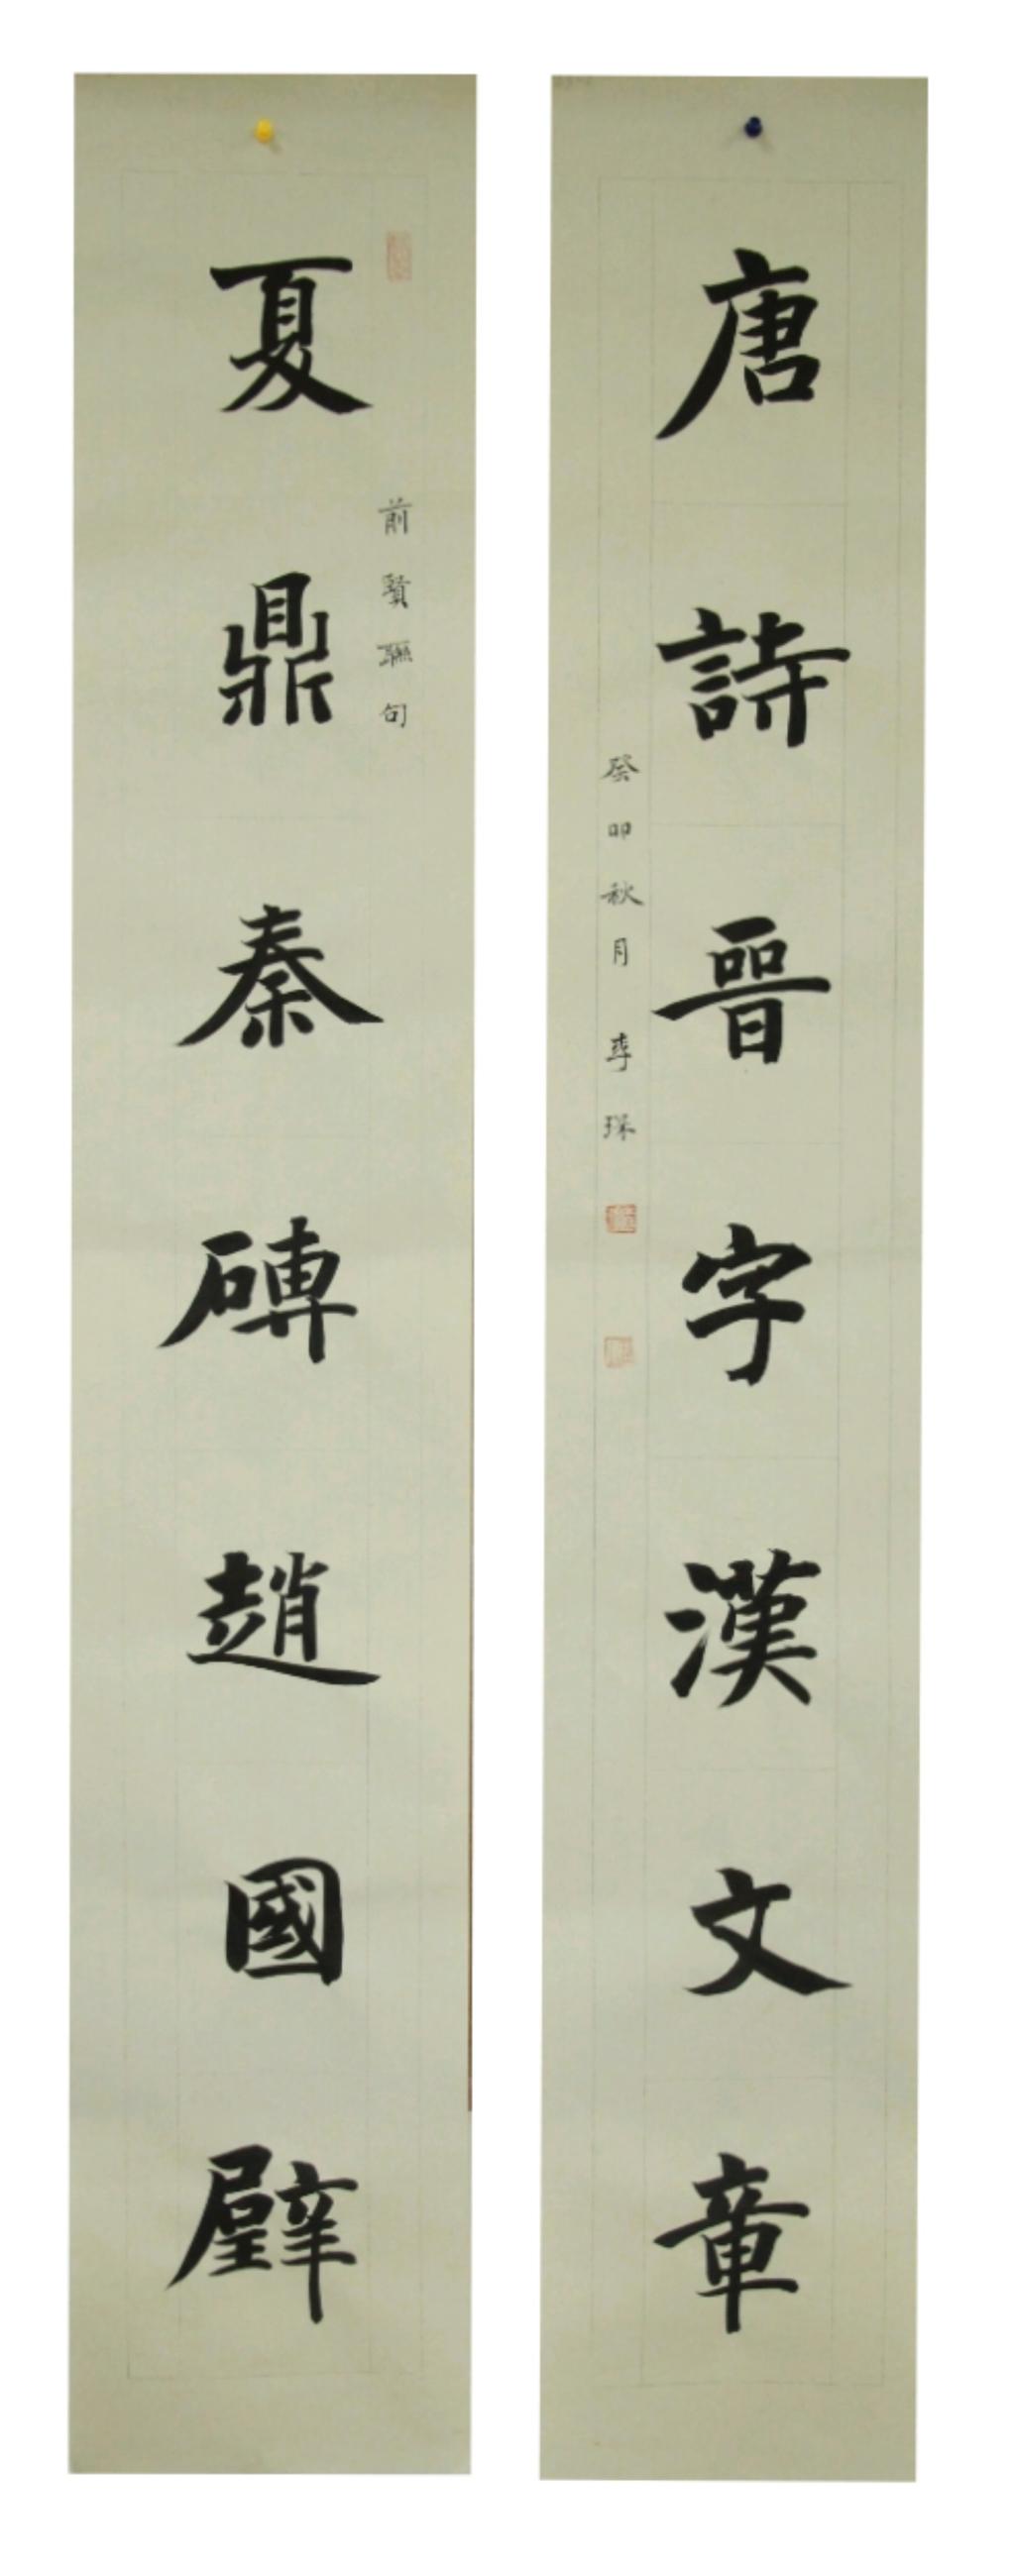 夏鼎秦磚趙國璧
前賢聯句
唐詩晉字漢文章
癸卯秋月 李琛